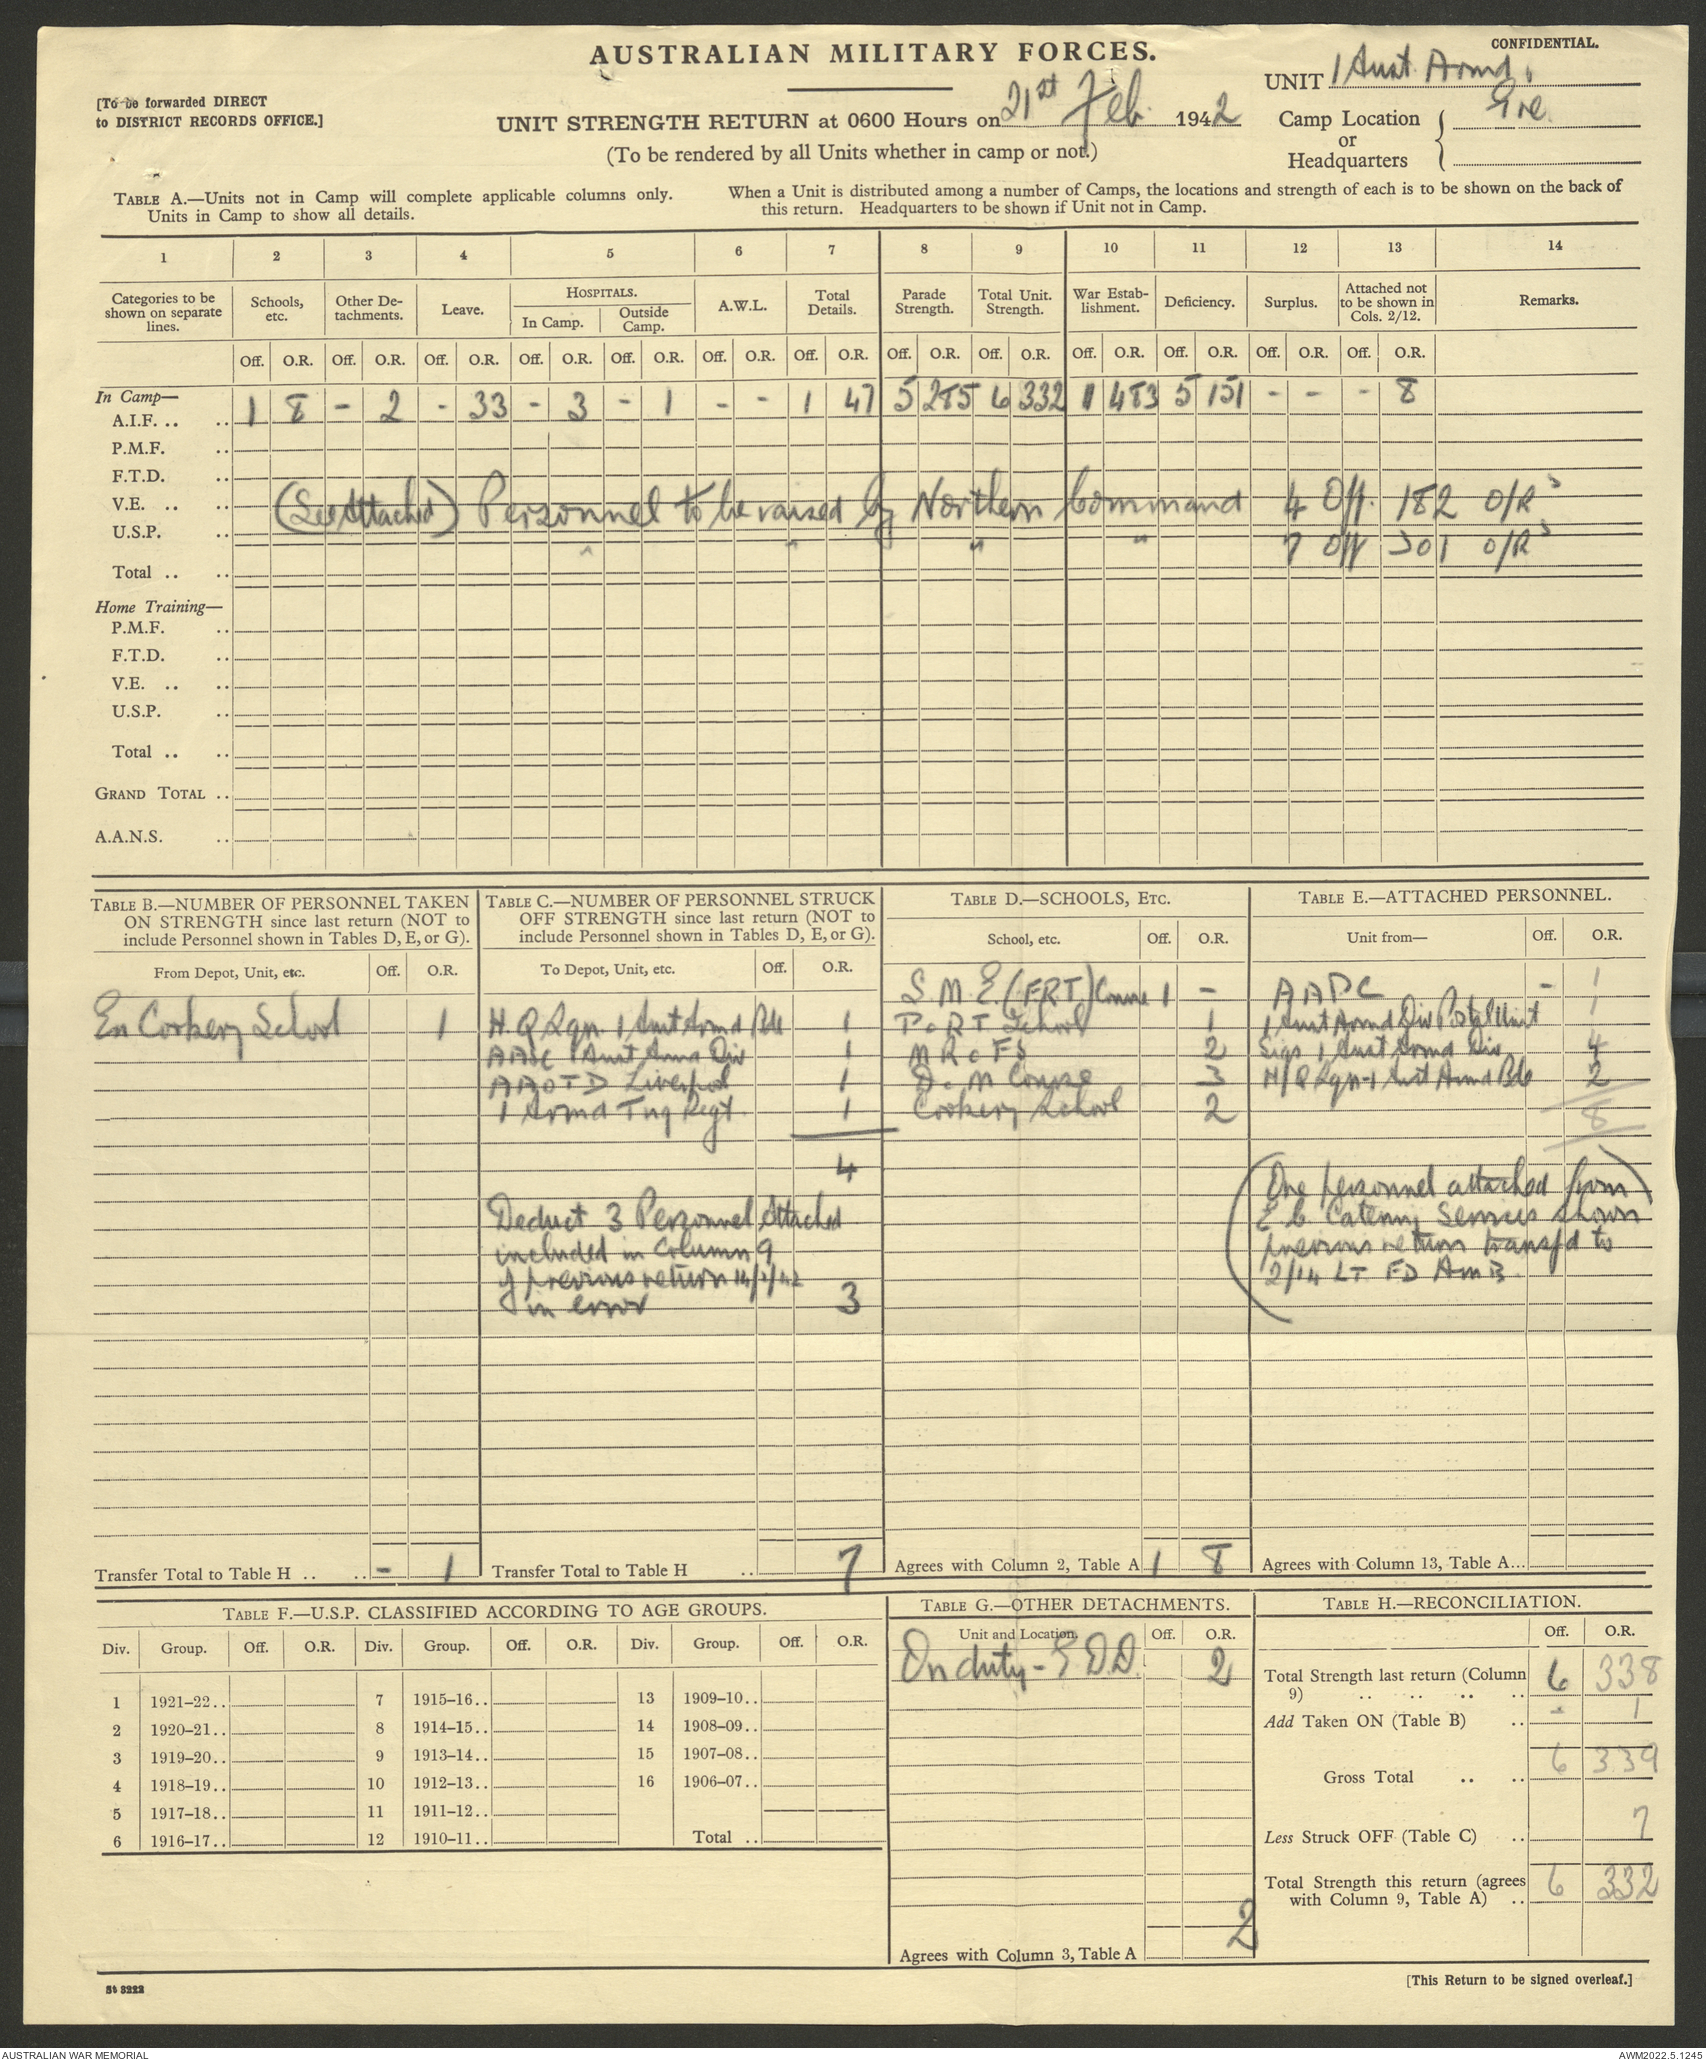 CONFIDENTIAL.
AUSTRALIAN MILITARY FORCES.
UNIT 1 Aust. Armd.
[To be forwarded DIRECT
to DISTRICT RECORDS OFFICE.]
UNIT STRENGTH RETURN at 0600 Hours on 21st Feb. 1942
(To be rendered by all Units whether in camp or not.)
Camp Location
or
Headquarters
TABLE A.—Units not in Camp will complete applicable columns only.
Units in Camp to show all details.
When a Unit is distributed among a number of Camps, the locations and strength of each is to be shown on the back of
this return. Headquarters to be shown if Unit not in Camp.
1 2 3 4 5 6 7 8 9 10 11 12 13 14
Categories to be shown on separate lines. Schools, etc. Other Detachments. Leave. HOSPITALS. In Camp. Outside Camp. A.W.L. Total Details. Parade Strength. Total Unit. Strength. War Establishment. Deficiency. Surplus. Attached not to be shown in Cols. 2/12. Remarks.
Off. O.R. Off. O.R. Off. O.R. Off. O.R. Off. O.R. Off. O.R. Off. O.R. Off. O.R. Off. O.R. Off. O.R. Off. O.R. Off. O.R. Off. O.R.
In Camp—
A.I.F. .. .. 1 8 - 2 - 33 - 3 - 1 - - 1 47 5 285 6 332 11 483 5 151 - - - 8
P.M.F. ..
F.T.D. ..
V.E. .. .. (See Attached) Personnel to be raised by Northern Command 4 Off. 182 O/Rs
U.S.P. .. " " " " 7 Off 301 O/Rs
Total .. ..
Home Training—
P.M.F. ..
F.T.D. ..
V.E. .. ..
U.S.P. ..
Total .. ..
GRAND TOTAL ..
A.A.N.S. ..
TABLE B.—NUMBER OF PERSONNEL TAKEN
ON STRENGTH since last return (NOT to
include Personnel shown in Tables D, E, or G).
From Depot, Unit, etc. Off. O.R.
En Cookery School 1
Transfer Total to Table H .. .. - 1
TABLE C.—NUMBER OF PERSONNEL STRUCK
OFF STRENGTH since last return (NOT to
include Personnel shown in Tables D, E, or G).
To Depot, Unit, etc. Off. O.R.
H.Q Sqn. 1 Aust Armd Bde 1
AASC 1 Aust Armd Div 1
AAOTD Liverpool 1
1 Armd Tng Regt. 1
4
Deduct 3 Personnel Attached
included in Column 9
of previous return 14/2/42
in error 3
Transfer Total to Table H .. 7
TABLE D.—SCHOOLS, ETC.
School, etc. Off. O.R.
S.M.E. (F.R.T.) Course 1 -
P & R T School 1
M R of FS 2
D & M Course 3
Cookery School 2
Agrees with Column 2, Table A 1 8
TABLE E.—ATTACHED PERSONNEL.
Unit from— Off. O.R.
AAPC - 1
1 Aust Armd Div Postal Unit 1
Sigs 1 Aust Armd Div 4
H/Q Sqn-1 Aust Armd Bde 2
8
(One personnel attached from
E.C. Catering Services shown
previous return transfd to
2/14 LT FD AMB)
Agrees with Column 13, Table A...
TABLE F.—U.S.P. CLASSIFIED ACCORDING TO AGE GROUPS.
Div. Group. Off. O.R. Div. Group. Off. O.R. Div. Group. Off. O.R.
1 1921–22.. 7 1915–16.. 13 1909–10..
2 1920–21.. 8 1914–15.. 14 1908–09..
3 1919–20.. 9 1913–14.. 15 1907–08..
4 1918–19.. 10 1912–13.. 16 1906–07..
5 1917–18.. 11 1911–12..
6 1916–17.. 12 1910–11.. Total ..
TABLE G.—OTHER DETACHMENTS.
Unit and Location. Off. O.R.
On duty - E.D.D. 2
2
Agrees with Column 3, Table A
TABLE H.—RECONCILIATION.
Off. O.R.
Total Strength last return (Column
9) .. .. .. .. 6 338
Add Taken ON (Table B) .. - 1
Gross Total .. .. 6 339
Less Struck OFF (Table C) .. 7
Total Strength this return (agrees
with Column 9, Table A) .. 6 332
St 3222
[This Return to be signed overleaf.]
AUSTRALIAN WAR MEMORIAL
AWM2022.5.1245